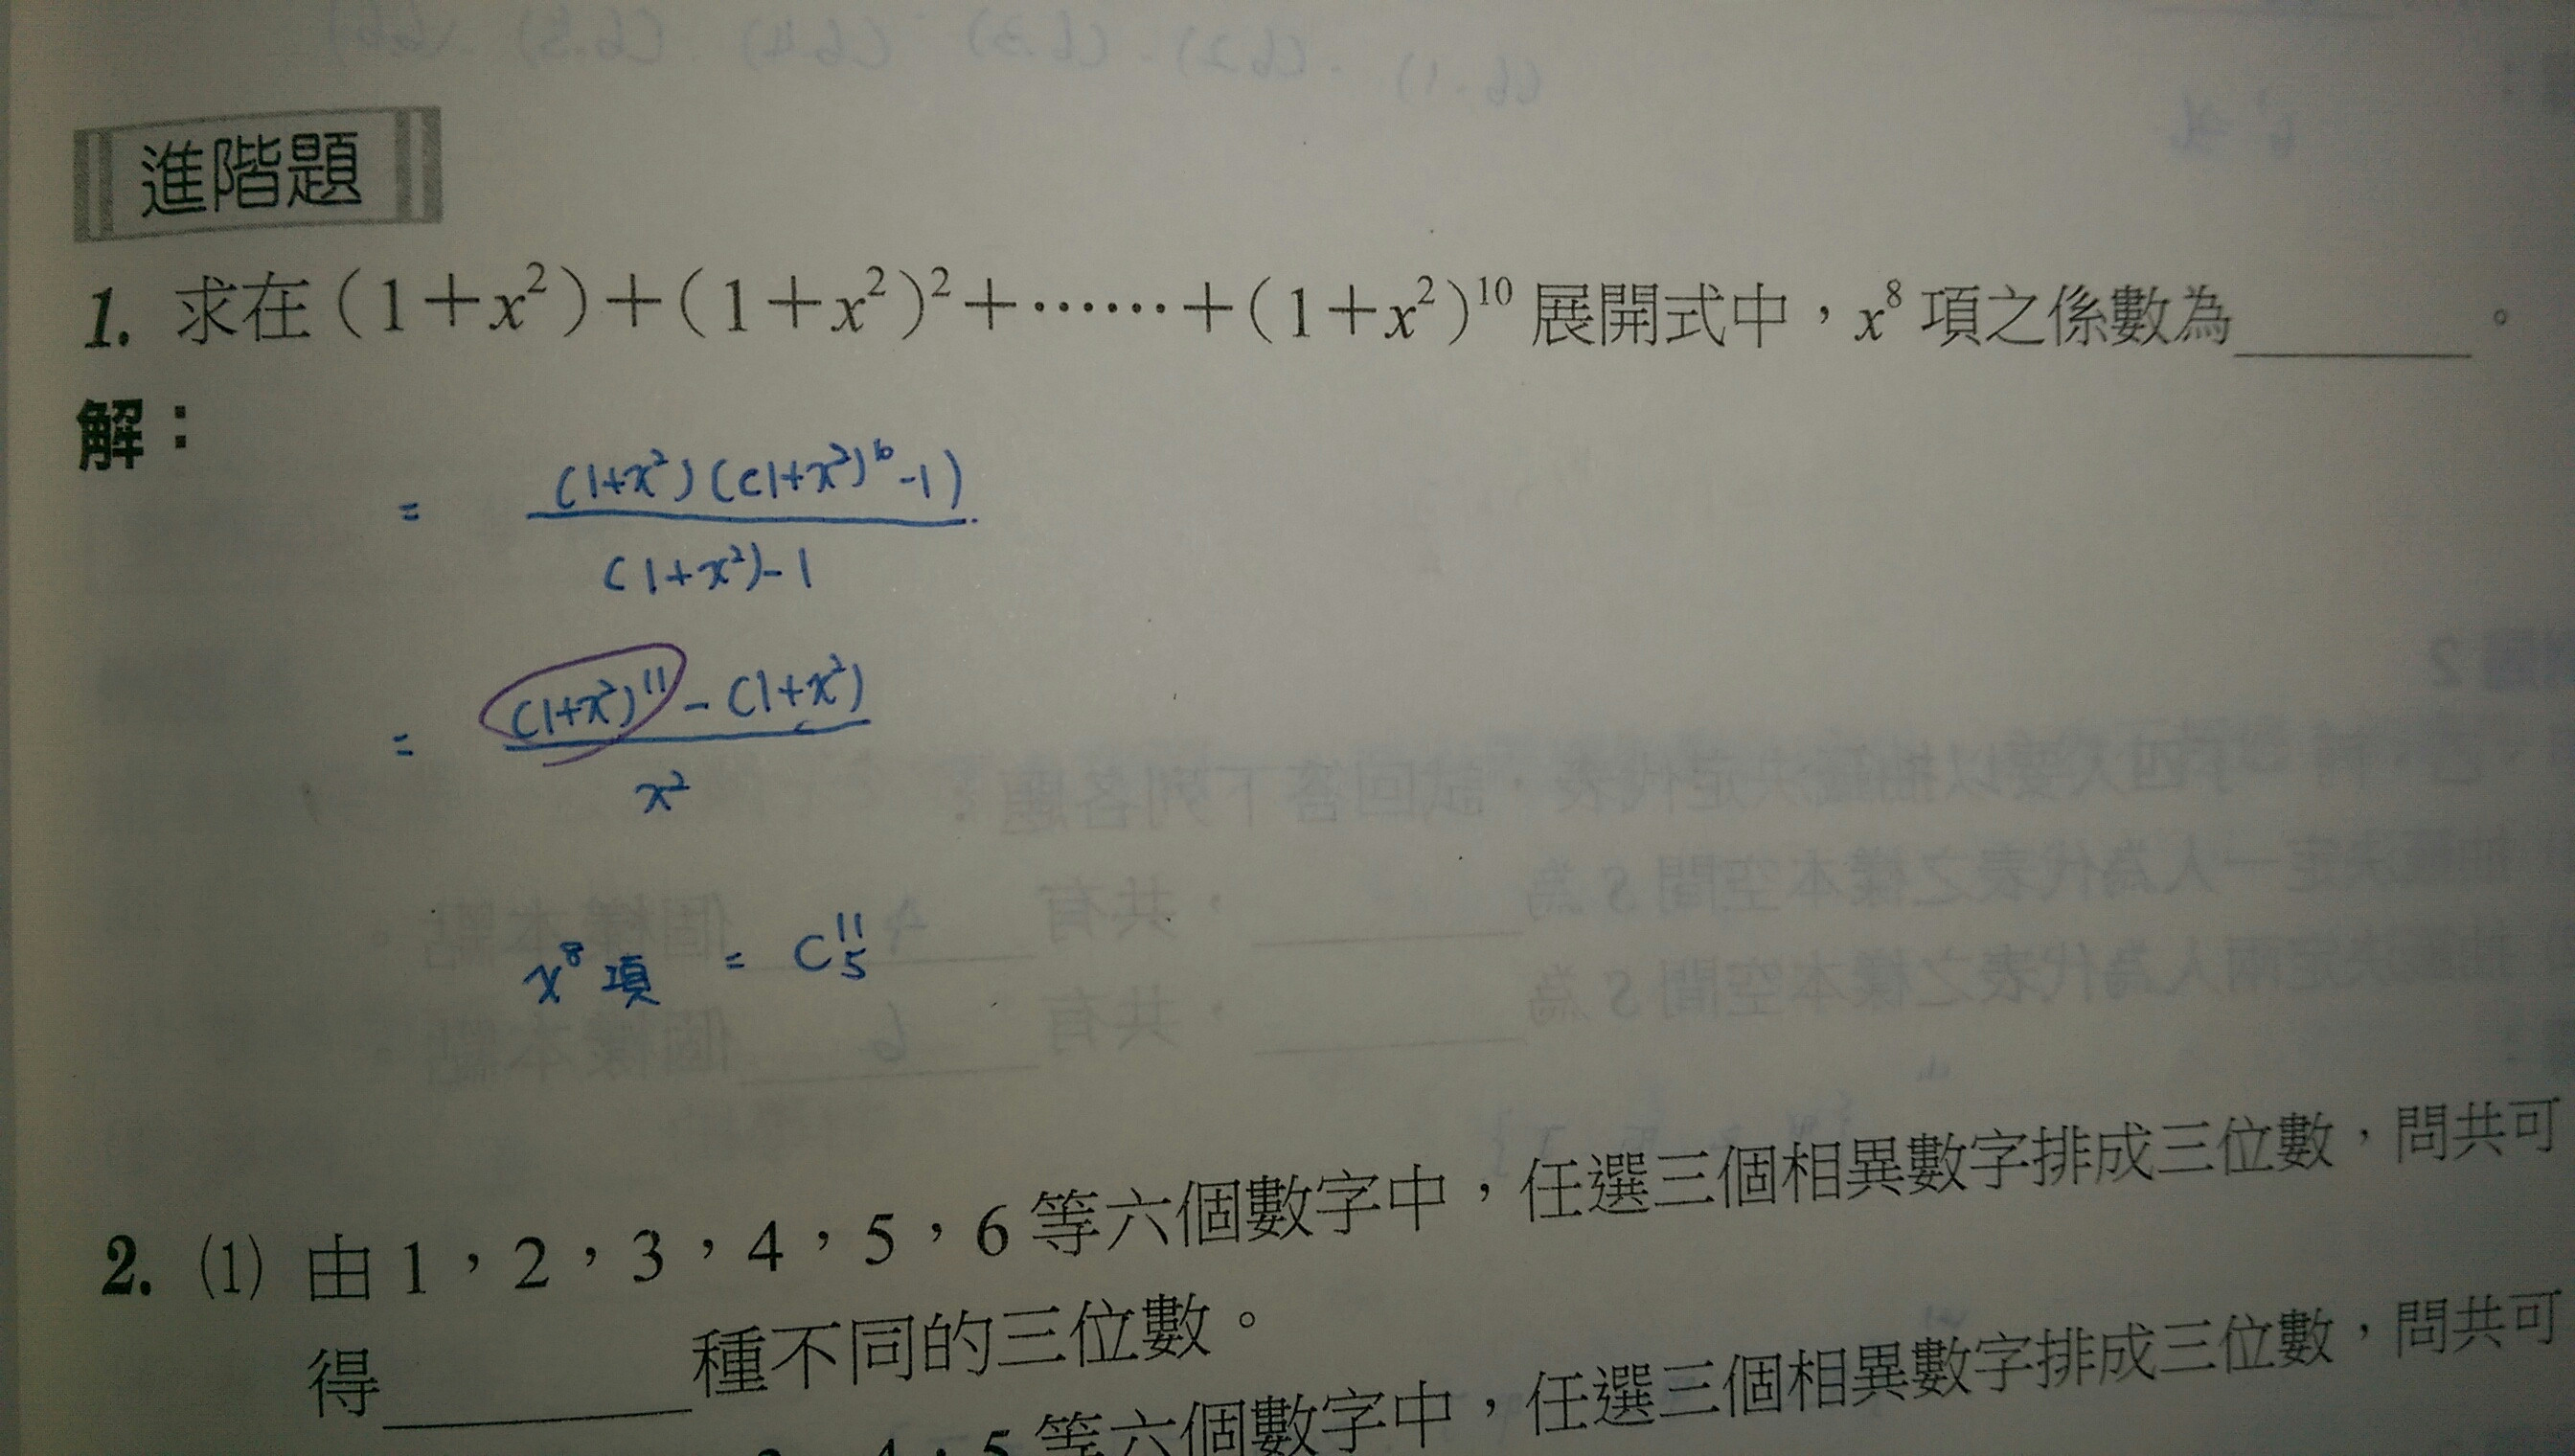 進階題
1. 求在(1+x²)+(1+x²)²+⋯⋯+(1+x²)¹⁰展開式中,x⁸項之係數為______。
解:
= (1+x²)((1+x²)¹⁰-1)
(1+x²)-1
= (1+x²)¹¹-(1+x²)
x²
x⁸項 = C¹¹₅
2. (1) 由1,2,3,4,5,6等六個數字中,任選三個相異數字排成三位數,問共可
得______種不同的三位數。
4,5等六個數字中,任選三個相異數字排成三位數,問共可